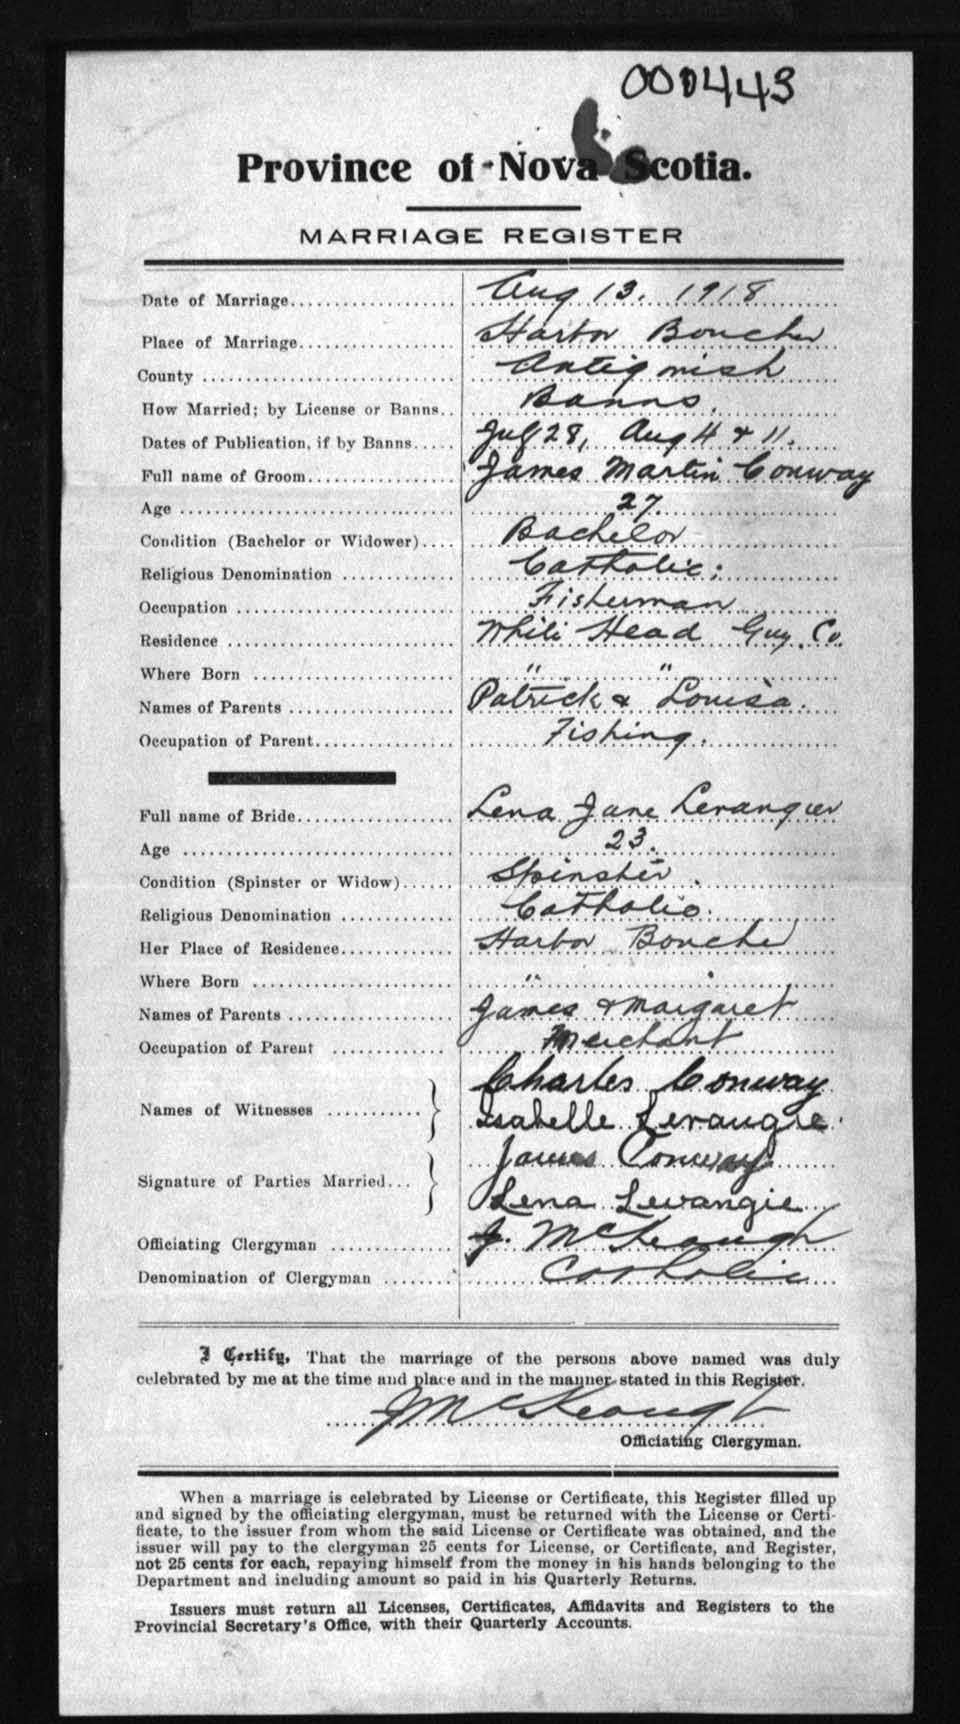 000443
Province of Nova Scotia.
MARRIAGE REGISTER
Date of Marriage Aug 13. 1918
Place of Marriage Harbor Boucher
County Antigonish
How Married; by License or Banns Banns.
Dates of Publication, if by Banns July 28, Aug 4 & 11.
Full name of Groom James Martin Conway
Age 27.
Condition (Bachelor or Widower) Bachelor
Religious Denomination Catholic.
Occupation Fisherman
Residence White Head Guy. Co.
Where Born " "
Names of Parents Patrick & Louisa.
Occupation of Parent Fishing.
Full name of Bride Lena Jane Levangier
Age 23.
Condition (Spinster or Widow) Spinster.
Religious Denomination Catholic.
Her Place of Residence Harbor Bouche
Where Born "
Names of Parents James & Margaret
Occupation of Parent Merchant
Names of Witnesses } Charles Conway
Isabelle Levangie.
Signature of Parties Married } James Conway
Lena Levangie
Officiating Clergyman J. McKeough
Denomination of Clergyman Catholic
I Certify, That the marriage of the persons above named was duly
celebrated by me at the time and place and in the manner stated in this Register.
J McKeough
Officiating Clergyman.
When a marriage is celebrated by License or Certificate, this Register filled up
and signed by the officiating clergyman, must be returned with the License or Certi-
ficate, to the issuer from whom the said License or Certificate was obtained, and the
issuer will pay to the clergyman 25 cents for License, or Certificate, and Register,
not 25 cents for each, repaying himself from the money in his hands belonging to the
Department and including amount so paid in his Quarterly Returns.
Issuers must return all Licenses, Certificates, Affidavits and Registers to the
Provincial Secretary's Office, with their Quarterly Accounts.